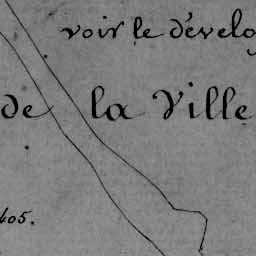 voir le dévelo
de la Ville
405.